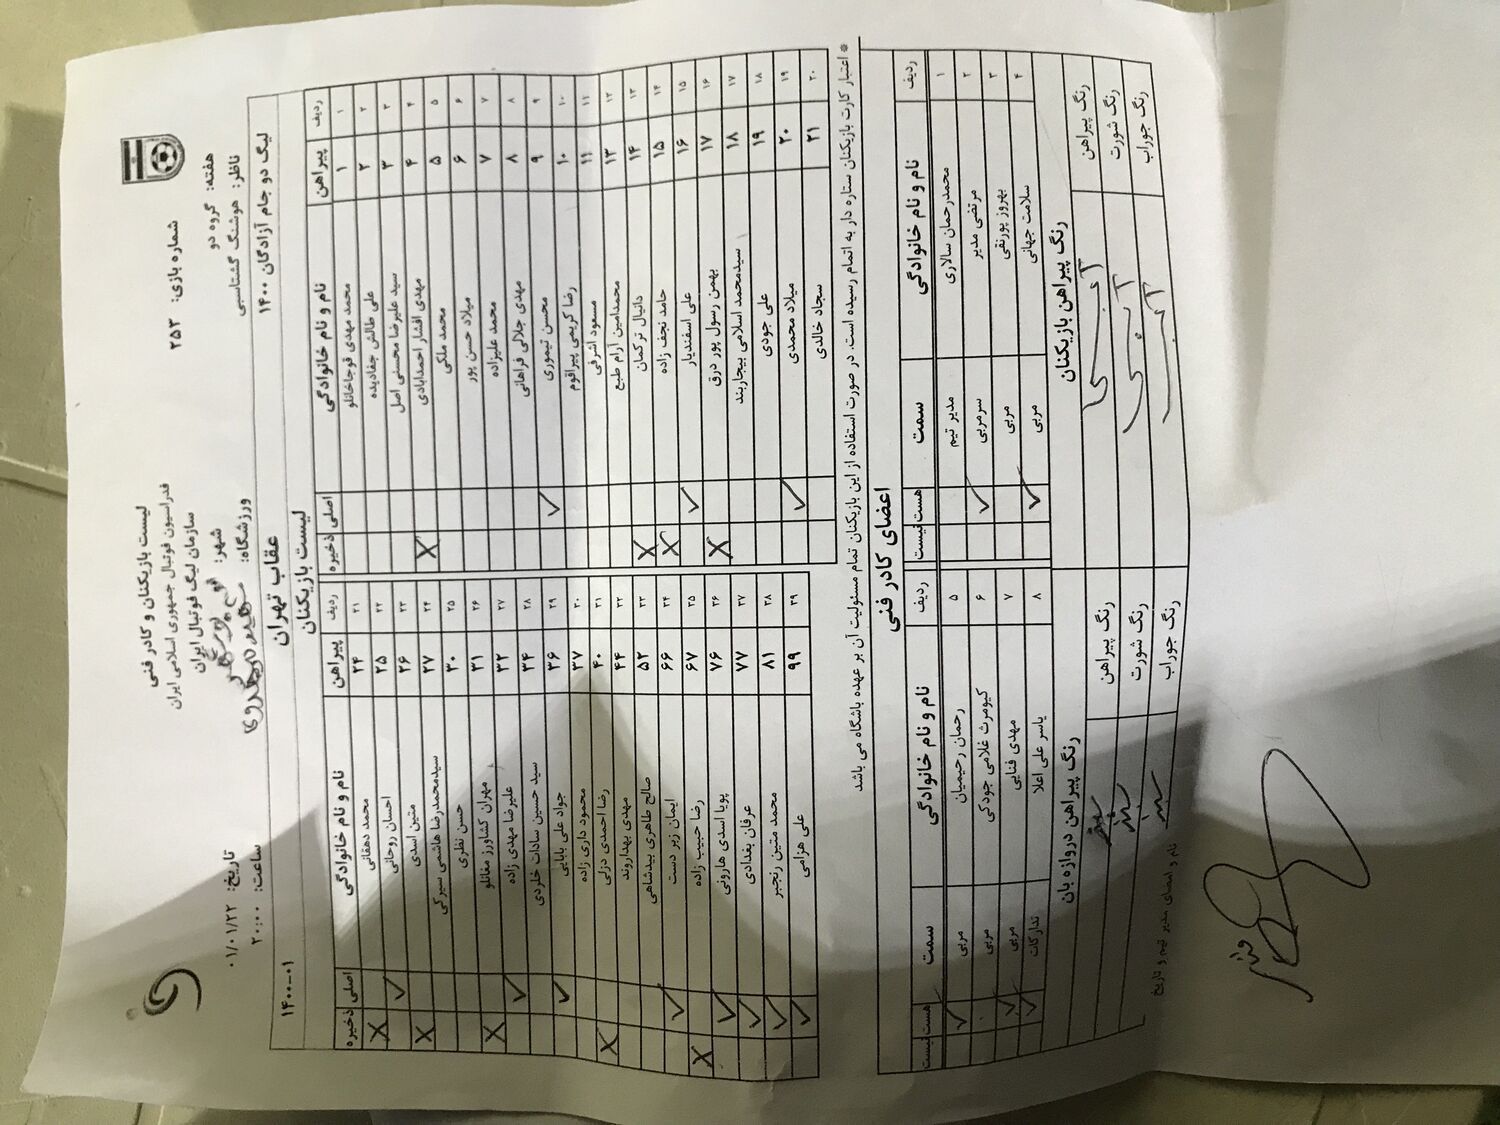 لیست بازیکنان و کادر فنی
فدراسیون فوتبال جمهوری اسلامی ایران
سازمان لیگ فوتبال ایران
شماره بازی: ۲۵۳
تاریخ: ۰۱/۰۱/۲۲
هفته: گروه دو
شهر:
ساعت: ۲۰:۰۰
ناظر: هوشنگ گشتاسبی
ورزشگاه:
لیگ دو جام آزادگان ۱۴۰۰
عقاب تهران
۱۴۰۰-۰۱
لیست بازیکنان
ردیف پیراهن نام و نام خانوادگی اصلی ذخیره
۱ ۱ محمد مهدی قوجاخانلو
۲ ۲ علی طالش جفادیده
۳ ۳ سید علیرضا محسنی اصل
۴ ۴ مهدی افشار احمدابادی
۵ ۵ محمد ملکی X
۶ ۶ میلاد حسن پور
۷ ۷ محمد علیزاده
۸ ۸ مهدی جلالی فراهانی
۹ ۹ محسن تیموری ✓
۱۰ ۱۰ رضا کریمی پیراقوم
۱۱ ۱۱ مسعود اشرفی
۱۲ ۱۳ محمدامین آرام طبع
۱۳ ۱۴ دانیال ترکمان X
۱۴ ۱۵ حامد نجف زاده X
۱۵ ۱۶ علی اسفندیار ✓
۱۶ ۱۷ بهمن رسول پور درق X
۱۷ ۱۸ سیدمحمد اسلامی بیجاربند
۱۸ ۱۹ علی جودی
۱۹ ۲۰ میلاد محمدی ✓
۲۰ ۲۱ سجاد خالدی
ردیف پیراهن نام و نام خانوادگی اصلی ذخیره
۲۱ ۲۴ محمد دهقانی X
۲۲ ۲۵ احسان روحانی ✓
۲۳ ۲۶ متین اسدی X
۲۴ ۲۷ سیدمحمدرضا هاشمی سیرکی
۲۵ ۳۰ حسن نظری
۲۶ ۳۱ مهران کشاورز مغانلو X
۲۷ ۳۲ علیرضا مهدی زاده ✓
۲۸ ۳۴ سید حسین سادات خلردی
۲۹ ۳۶ جواد علی بابایی ✓
۳۰ ۳۷ محمود داری زاده
۳۱ ۴۰ رضا احمدی دزلی X
۳۲ ۴۴ مهدی بهداروند
۳۳ ۵۲ صالح طاهری بیدشاهی
۳۴ ۶۶ ایمان زبر دست ✓
۳۵ ۶۷ رضا حبیب زاده X
۳۶ ۷۶ پویا اسدی هارونی ✓
۳۷ ۷۷ عرفان بغدادی ✓
۳۸ ۸۱ محمد متین رنجبر ✓
۳۹ ۹۹ علی هزامی ✓
* اعتبار کارت بازیکنان ستاره دار به اتمام رسیده است. در صورت استفاده از این بازیکنان تمام مسئولیت آن بر عهده باشگاه می باشد
اعضای کادر فنی
ردیف نام و نام خانوادگی سمت هست نیست
۱ محمدرحمان سالاری مدیر تیم
۲ مرتضی مدیر سرمربی ✓
۳ بهروز پورتقی مربی
۴ سلامت جهانی مربی ✓
ردیف نام و نام خانوادگی سمت هست نیست
۵ رحمان رحیمیان مربی ✓
۶ کیومرث غلامی جودکی مربی
۷ مهدی فنایی مربی ✓
۸ یاسر علی اعلا تدارکات ✓
رنگ پیراهن بازیکنان
رنگ پیراهن آبی
رنگ شورت آبی
رنگ جوراب آبی
رنگ پیراهن دروازه بان
رنگ پیراهن سبز
رنگ شورت سبز
رنگ جوراب سبز
نام و امضای مدیر تیم و تاریخ